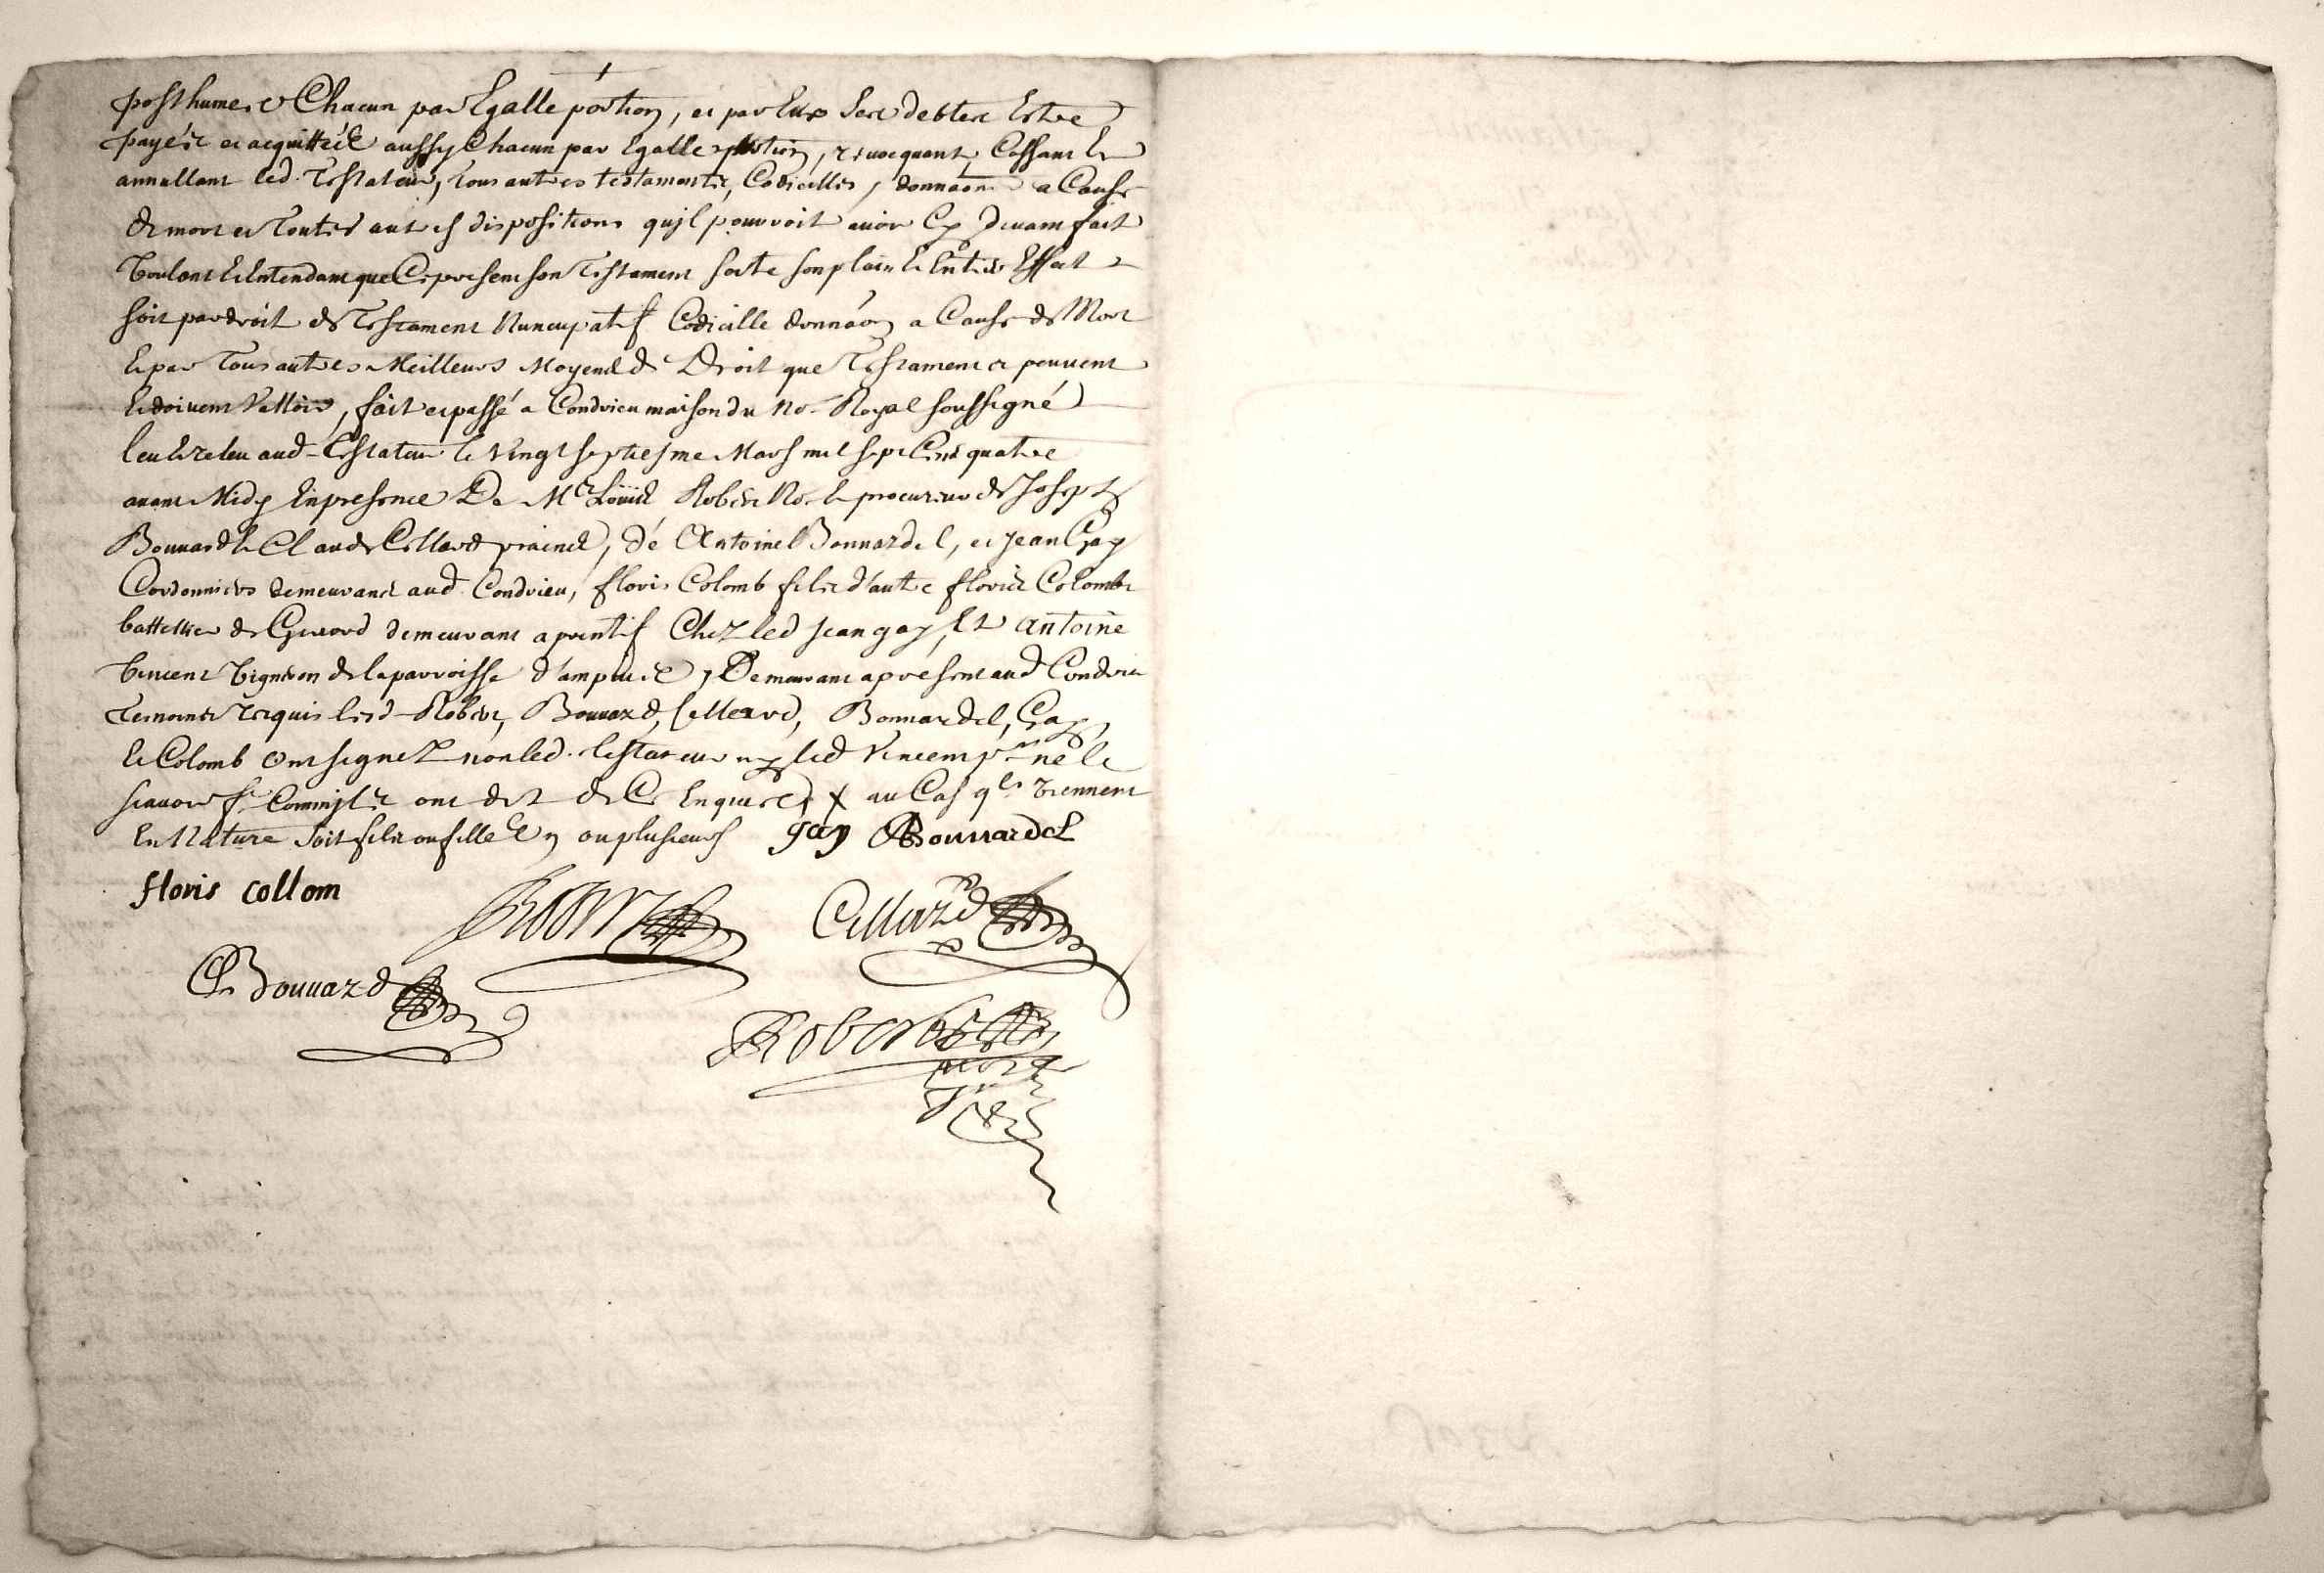 posthumes Chacun par Egalle portion, et par Eux Ses debtes Estre
payés et acquittés aussy Chacun par Egalle portion, revocquant, Cassant Et
annullant led. Testateur, tous autres testaments, Codicilles, donnaons a Cause
de mort et Toutes autres dispositions qu'jl pourroit avoir Cy devant fait
Voulant Et Entendant que Ce present son Testament sorte son plain Et Entier Effect
soit par droit de Testament Nuncupatif Codicille donnaon a Cause de Mort
Et par Tous autres Meilleurs Moyens de Droit que Testament peuvent
Et doivent Valloir, fait et passé a Condrieu maison du No.re Royal soussigné
leu Et releu aud. Testateur le Vingt septiesme Mars mil sept Cens quatre
avant Midy En presence De Me Louis Robert No.re Et procureur de Joseph
Bouvard Et Claude Cellard praticiens, de Antoine Bonnardel, et Jean Gay
Cordonniers demeurans aud. Condrieu, floris Colomb fils d'autre floris Colomb
battellier de Givord demeurant aprentif Chez led Jean gay, Et antoine
Vincent Vigneron de la parroisse d'ampuis, Demeurant a present aud Condrieu
Temoins requis lesd. Robert, Bouvard, Cellard, Bonnardel, Gay,
Et Colomb Ont signez non led. testateur ny led Vincent p.r ne le
scavoir Comm'jls ont dit de Ce Enquis X au Cas q.ls Viennent
En Nature soit fils ou fille Un ou plusieurs gay A Bonnardel
floris collom
Cellard
Bouvard
Robert